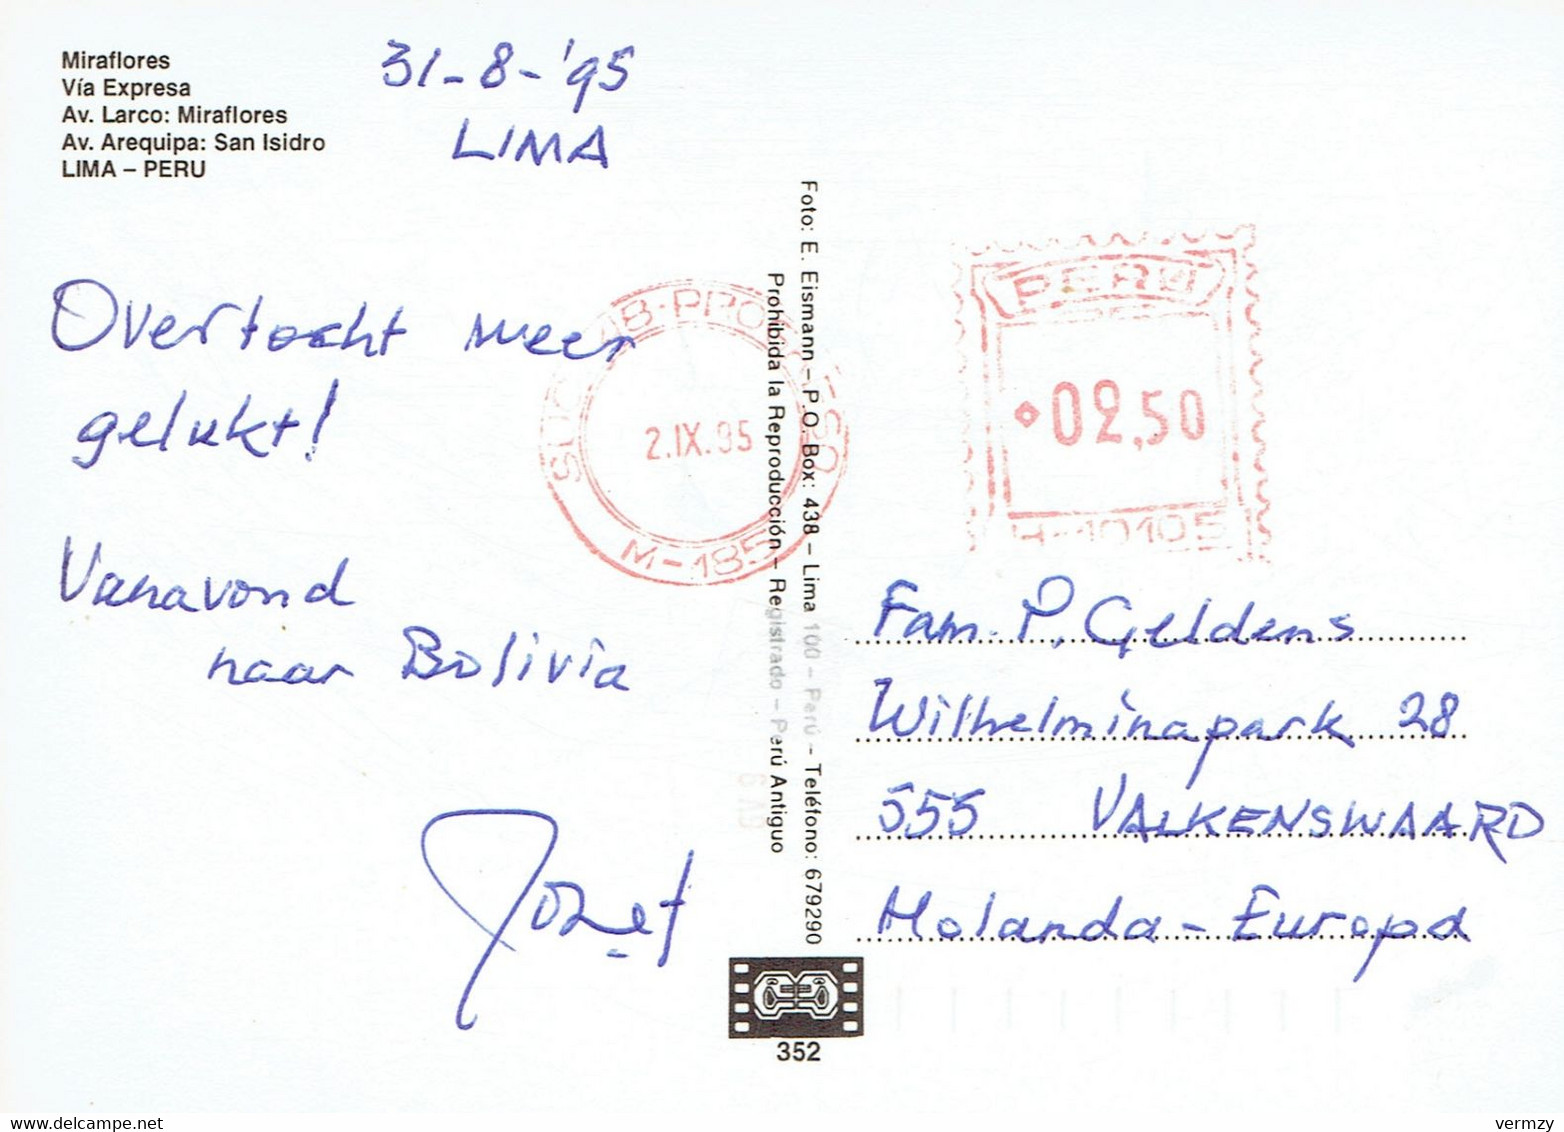 Miraflores
Vía Expresa
Av. Larco: Miraflores
Av. Arequipa: San Isidro
LIMA – PERU
31-8-'95
LIMA
Overtocht weer
gelukt!
Vanavond
naar Bolivia
Jozef
Foto: E. Eismann – P.O. Box: 438 – Lima 100 – Perú – Teléfono: 679290
Prohibida la Reproducción – Registrado – Perú Antiguo
2.IX.95
M-185
PERU
02,50
H-10105
Fam. P. Geldens
Wilhelminapark 28
555 VALKENSWAARD
Holanda - Europa
352
vermzy